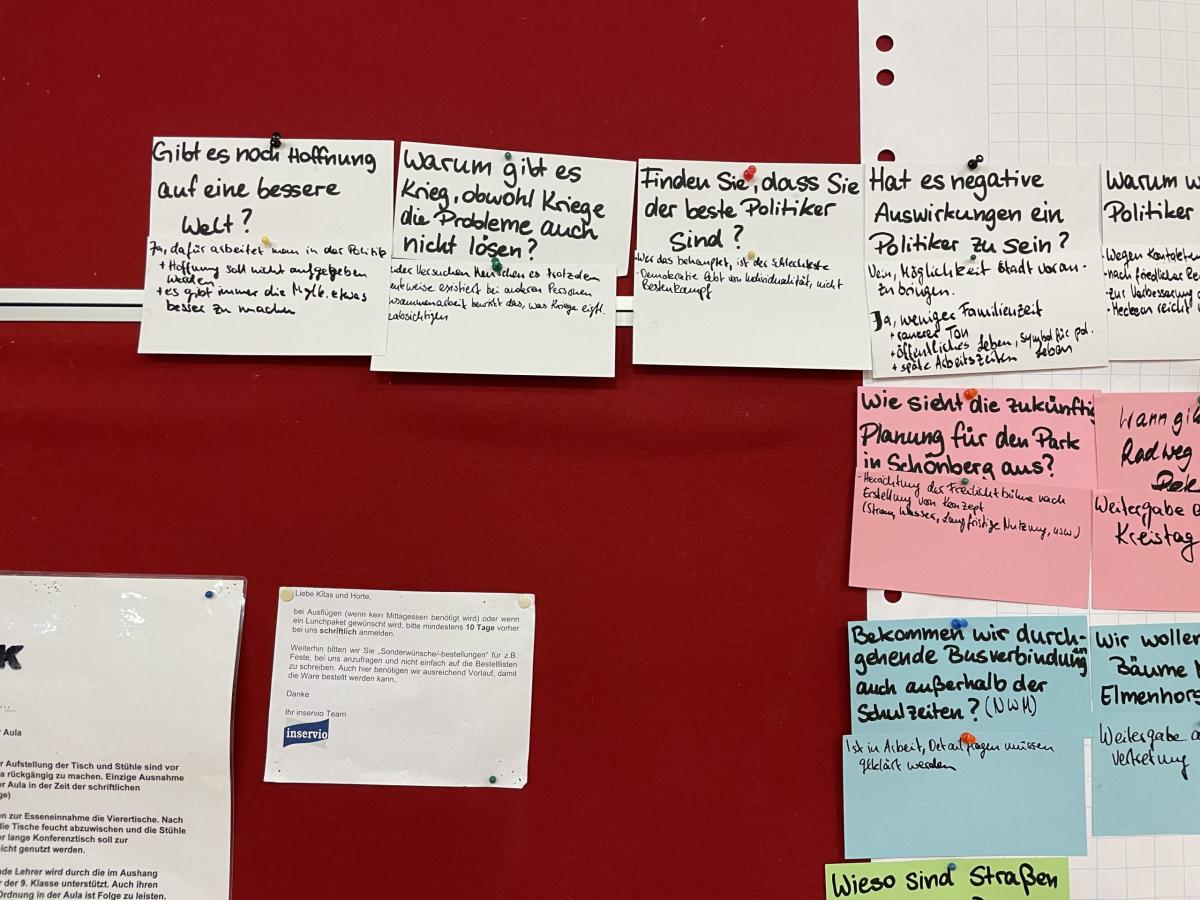 Gibt es noch Hoffnung
auf eine bessere
Welt?
Ja, dafür arbeitet man in der Politik
+ Hoffnung soll nicht aufgegeben
werden
+ es gibt immer die Mglk. etwas
besser zu machen
Warum gibt es
Krieg, obwohl Kriege
die Probleme auch
nicht lösen?
Versuchen Menschen es trotzdem
existiert bei anderen Personen
bewirkt das, was Kriege eigtl.
Finden Sie, dass Sie
der beste Politiker
sind?
Wer das behauptet, ist der Schlechteste
- Demokratie lebt von Individualität, nicht
Hat es negative
Auswirkungen ein
Politiker zu sein?
Nein, Möglichkeit Stadt voran-
zubringen.
Ja, weniger Familienzeit
+ rauerer Ton
+ öffentliches Leben, Symbol für pol.
Leben
+ späte Arbeitszeiten
Warum w
Politiker
- Wegen Kontakten
- nach friedliche Re
- zur Verbesserung
- Meckern reicht
Wie sieht die zukünftig
Planung für den Park
in Schönberg aus?
- Herrichtung der Freilichtbühne nach
Erstellung von Konzept
(Strom, Wasser, Langfristige Nutzung, usw.)
Wann gi
Radweg
Weitergabe
Kreistag
Bekommen wir durch-
gehende Busverbindungen
auch außerhalb der
Schulzeiten? (NWM)
Ist in Arbeit, Detailfragen müssen
geklärt werden
Wir wollen
Bäume
Elmenhors
Weitergabe a
Vertretung
Wieso sind Straßen
K
r Aula
r Aufstellung der Tisch und Stühle sind vor
a rückgängig zu machen. Einzige Ausnahme
er Aula in der Zeit der schriftlichen
ge)
en zur Esseneinnahme die Vierertische. Nach
die Tische feucht abzuwischen und die Stühle
er lange Konferenztisch soll zur
icht genutzt werden.
nde Lehrer wird durch die im Aushang
r der 9. Klasse unterstützt. Auch ihren
Ordnung in der Aula ist Folge zu leisten.
Liebe Kitas und Horte,
bei Ausflügen (wenn kein Mittagessen benötigt wird) oder wenn
ein Lunchpaket gewünscht wird, bitte mindestens 10 Tage vorher
bei uns schriftlich anmelden.
Weiterhin bitten wir Sie „Sonderwünsche/-bestellungen" für z.B.
Feste, bei uns anzufragen und nicht einfach auf die Bestelllisten
zu schreiben. Auch hier benötigen wir ausreichend Vorlauf, damit
die Ware bestellt werden kann.
Danke
Ihr inservio Team
inservio